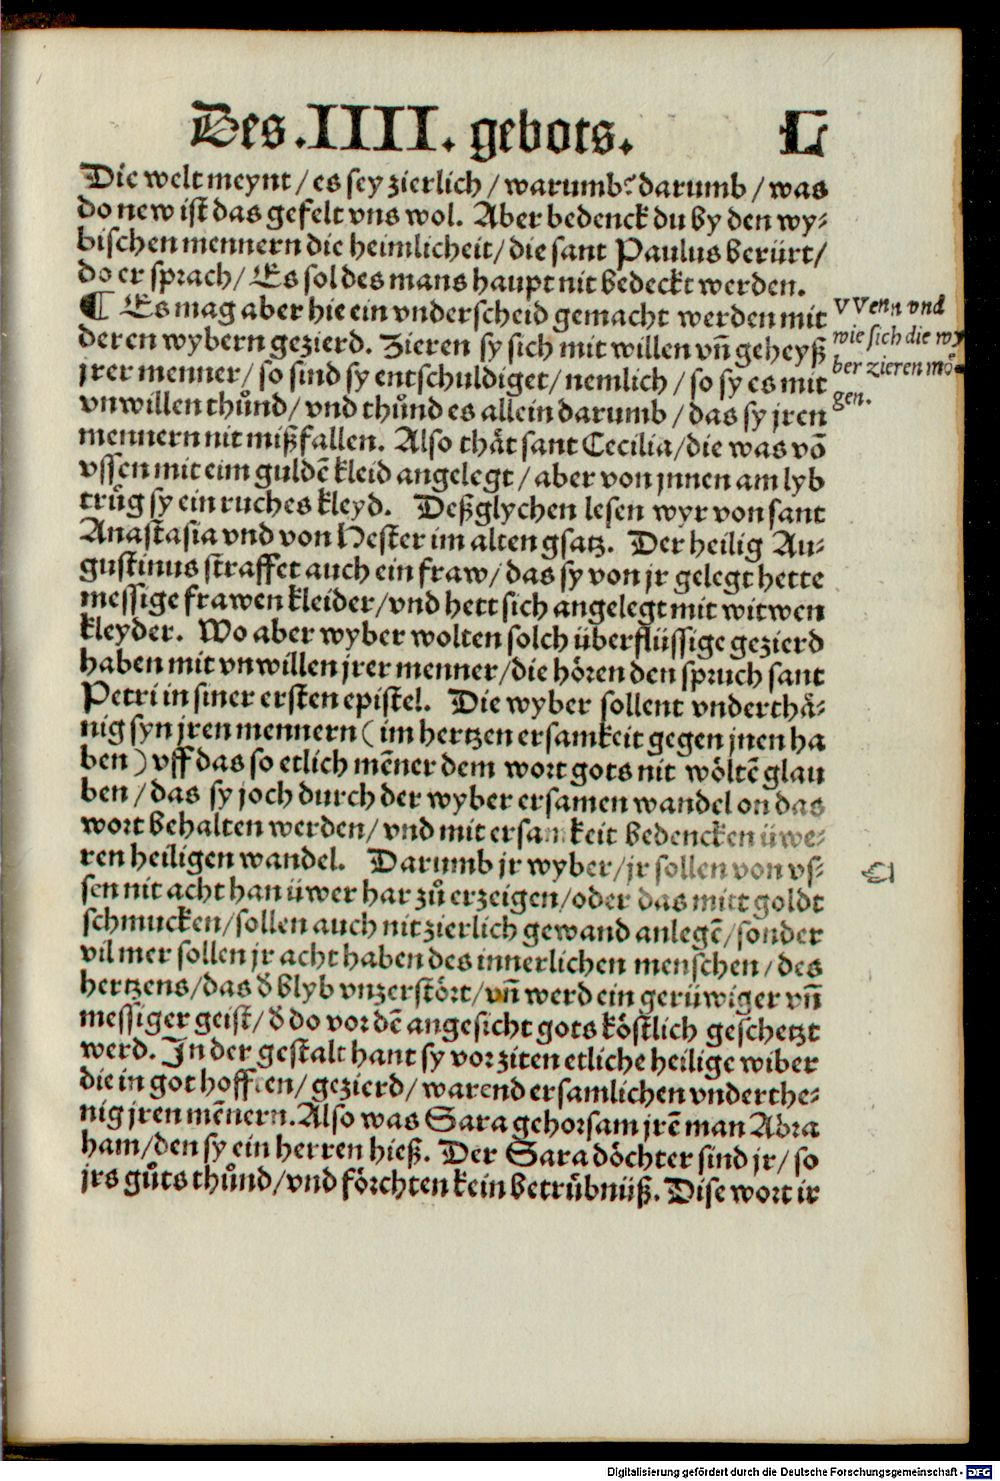 Des .IIII. gebots. L
Die welt meynt / es sey zierlich / warumb? darumb / was
do new ist das gefelt vns wol. Aber bedenck du by den wy⸗
bischen mennern die heimlicheit / die sant Paulus berürt /
do er sprach / Es sol des mans haupt nit bedeckt werden.
¶ Es mag aber hie ein vnderscheid gemacht werden mit
deren wybern gezierd. Zieren sy sich mit willen vn̄ geheyß
jrer menner / so sind sy entschuldiget / nemlich / so sy es mit
vnwillen thůnd / vnd thůnd es allein darumb / das sy jren
mennern nit mißfallen. Also thåt sant Cecilia / die was vō
vssen mit eim guldē kleid angelegt / aber von jnnen am lyb
trůg sy ein ruches kleyd. Deßglychen lesen wyr von sant
Anastasia vnd von Hester im alten gsatz. Der heilig Au⸗
gustinus straffet auch ein fraw / das sy von jr gelegt hette
messige frawen kleider / vnd hett sich angelegt mit witwen
kleyder. Wo aber wyber wolten solch überflüssige gezierd
haben mit vnwillen jrer menner / die hören den spruch sant
Petri in siner ersten epistel. Die wyber sollent vnderthå⸗
nig syn jren mennern ( im hertzen ersamkeit gegen jnen ha
ben ) vff das so etlich mēner dem wort gots nit wöltē glau
ben / das sy joch durch der wyber ersamen wandel on das
wort behalten werden / vnd mit ersamkeit bedencken üwe⸗
ren heiligen wandel. Darumb jr wyber / jr sollen von vs⸗
sen nit acht han üwer har zů erzeigen / oder das mitt goldt
schmucken / sollen auch nit zierlich gewand anlegē / sonder
vil mer sollen jr acht haben des innerlichen menschen / des
hertzens / das d̄ blyb vnzerstört / vn̄ werd ein gerüwiger vn̄
messiger geist / d̄ do vor dē angesicht gots köstlich geschetzt
werd. In der gestalt hant sy vor ziten etliche heilige wiber
die in got hofften / gezierd / warend ersamlichen vnderthe⸗
nig jren mēnern. Also was Sara gehorsam jrē man Abra
ham / den sy ein herren hieß. Der Sara döchter sind jr / so
jrs gůts thůnd / vnd förchten kein betrůbnüß. Dise wort ir
VVenn vnd
wie sich die wy
ber zieren mö⸗
gen.
Digitalisierung gefördert durch die Deutsche Forschungsgemeinschaft - DFG